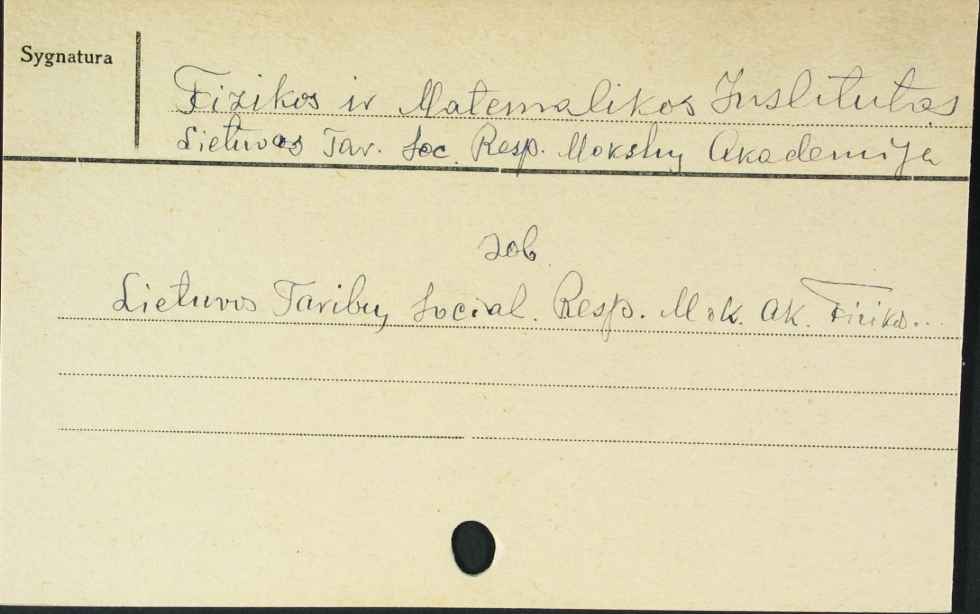 Sygnatura
Fizikos ir Matematikos Institutas
Lietuvos Tar. Soc. Resp. Mokslų Akademija
zob
Lietuvos Taribų Social. Resp. Mok. Ak. Fizikos...